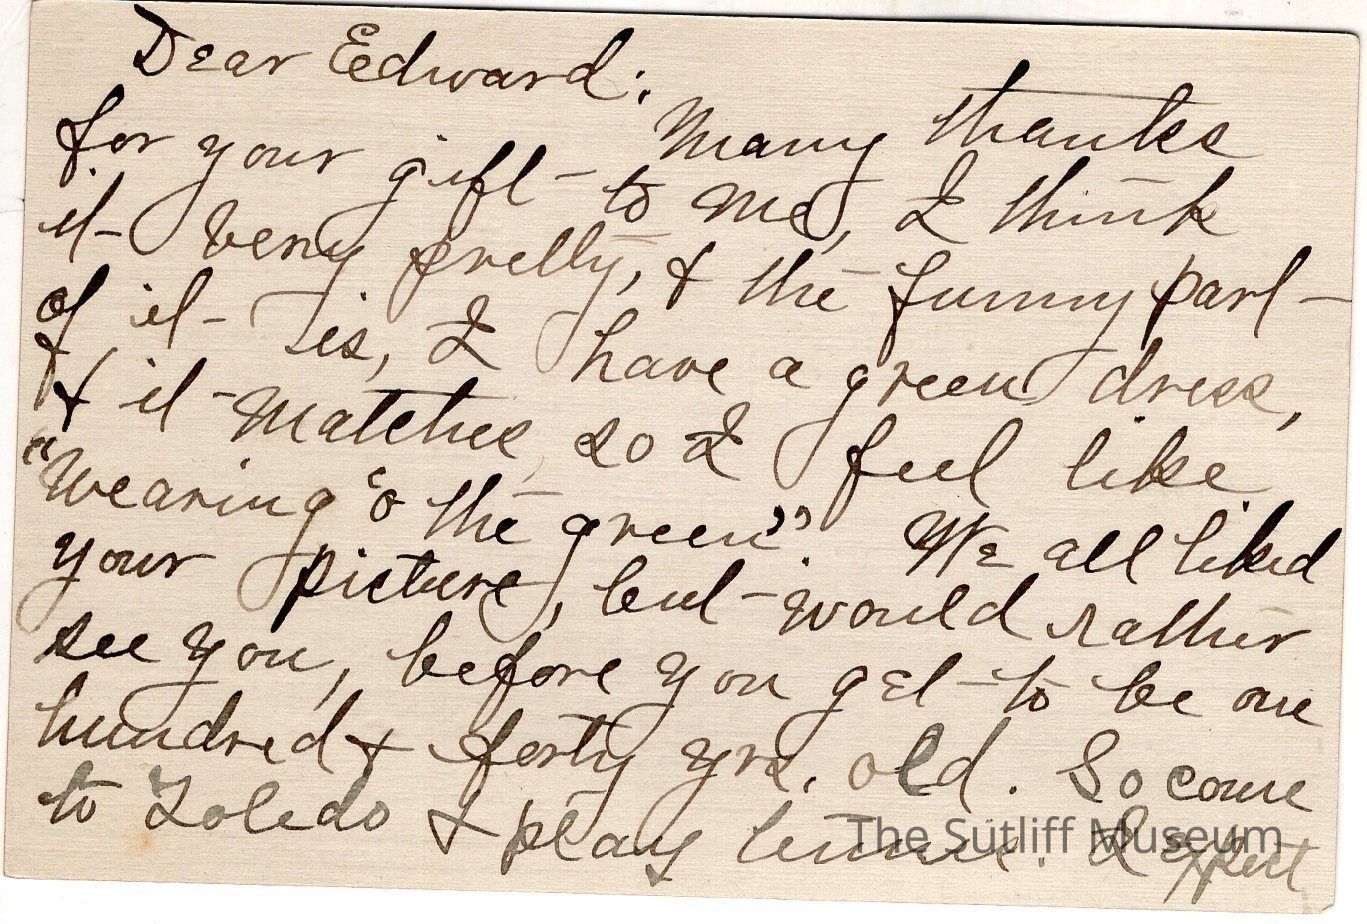 Dear Edward:
Many thanks
for your gift - to me, I think
it - very pretty, & the funny part -
of it - is, I have a green dress,
& it - matches, so I feel like
"Wearing 'o the green". We all liked
your picture, but - would rather
see you, before you get - to be one
hundred & forty yrs. old. So come
to Toledo & play tennis. I expect
The Sutliff Museum